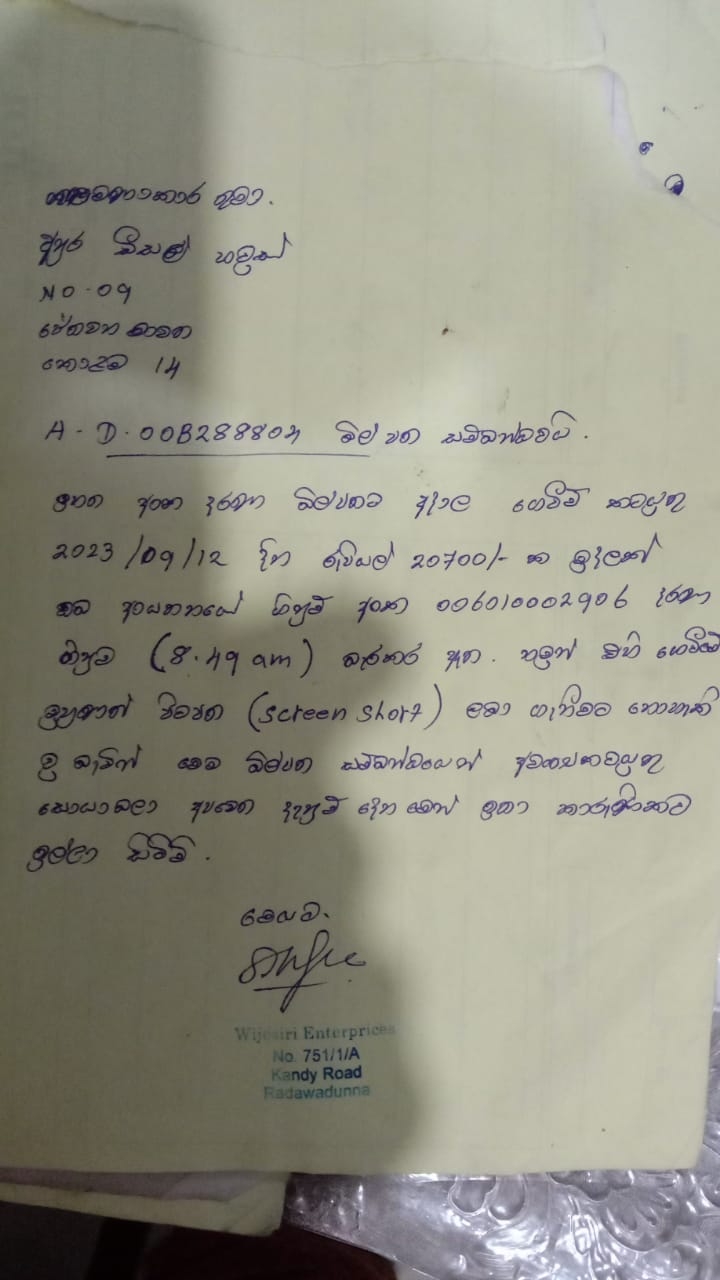 කළමනාකාර තුමා.
ඩීසල් හවුස්
NO - 09
ජේතවන මාවත
කොළඹ 14
A - D. 00B288804 බිල් පත සම්බන්ධවයි.
ඉහත අංක දරණ බිල්පතට අදාල ගෙවීම් කටයුතු
2023/09/12 දින රුපියල් 20700/- ක මුදලක්
ඔබ ආයතනයේ ගිණුම් අංක 006010002906 දරණ
ගිණුමට (8.49 am) බැරකර ඇත. නමුත් එහි ගෙවීම්
(screen short) ලබා ගැනීමට නොහැකි
වූ බැවින් මෙම බිල්පත සම්බන්ධයෙන් අවශ්‍යකටයුතු
සොයා බලා අපවෙත දැනුම් දෙන මෙන් ඉතා කාරුණිකව
ඉල්ලා සිටිමි.
මෙයට.
Wijesiri Enterprices
No. 751/1/A
Kandy Road
Radawadunna